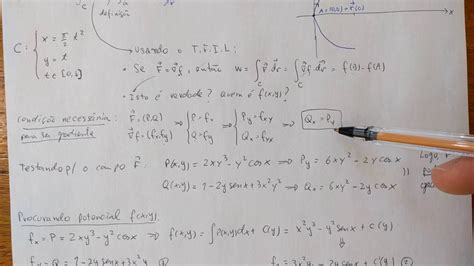 definição
A = (0,0) = r⃗(0)
x
C: { x = π/2 t²
y = t
t ∈ [0,1]
→ usando o T.F.I.L:
• Se F⃗ = ∇f, então W = ∫_C F⃗ · dr⃗ = ∫_C ∇f · dr⃗ = f(B) - f(A)
• Isto é verdade? Quem é f(x,y)?
condição necessária: F⃗ = (P,Q)
para ser gradiente ∇f = (fx, fy) ⇒ { P = fx
Q = fy ⇒ { Py = fxy
Qx = fyx ⇒ Qx = Py
Testando p/ o campo F⃗: P(x,y) = 2xy³ - y² cos x ⇒ Py = 6xy² - 2y cos x
Q(x,y) = 1 - 2y sen x + 3x²y² ⇒ Qx = 6xy² - 2y cos x
Logo,
Procurando potencial f(x,y):
fx = P = 2xy³ - y² cos x ⇒ f(x,y) = ∫P(x,y)dx + C(y) = x²y³ - y² sen x + C(y)